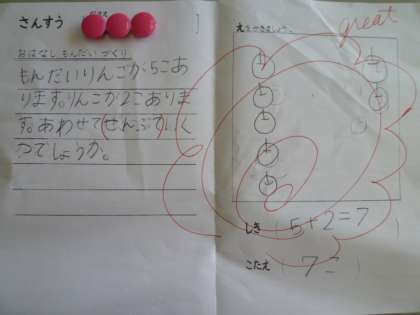 さんすう
おはなし もんだい づくり
もんだいりんごが5こあ
ります。りんこが2こありま
す。あわせてぜんぶでいく
つでしょうか。
great
えをかきましょう。
しき ( 5+2=7 )
こたえ ( 7こ )